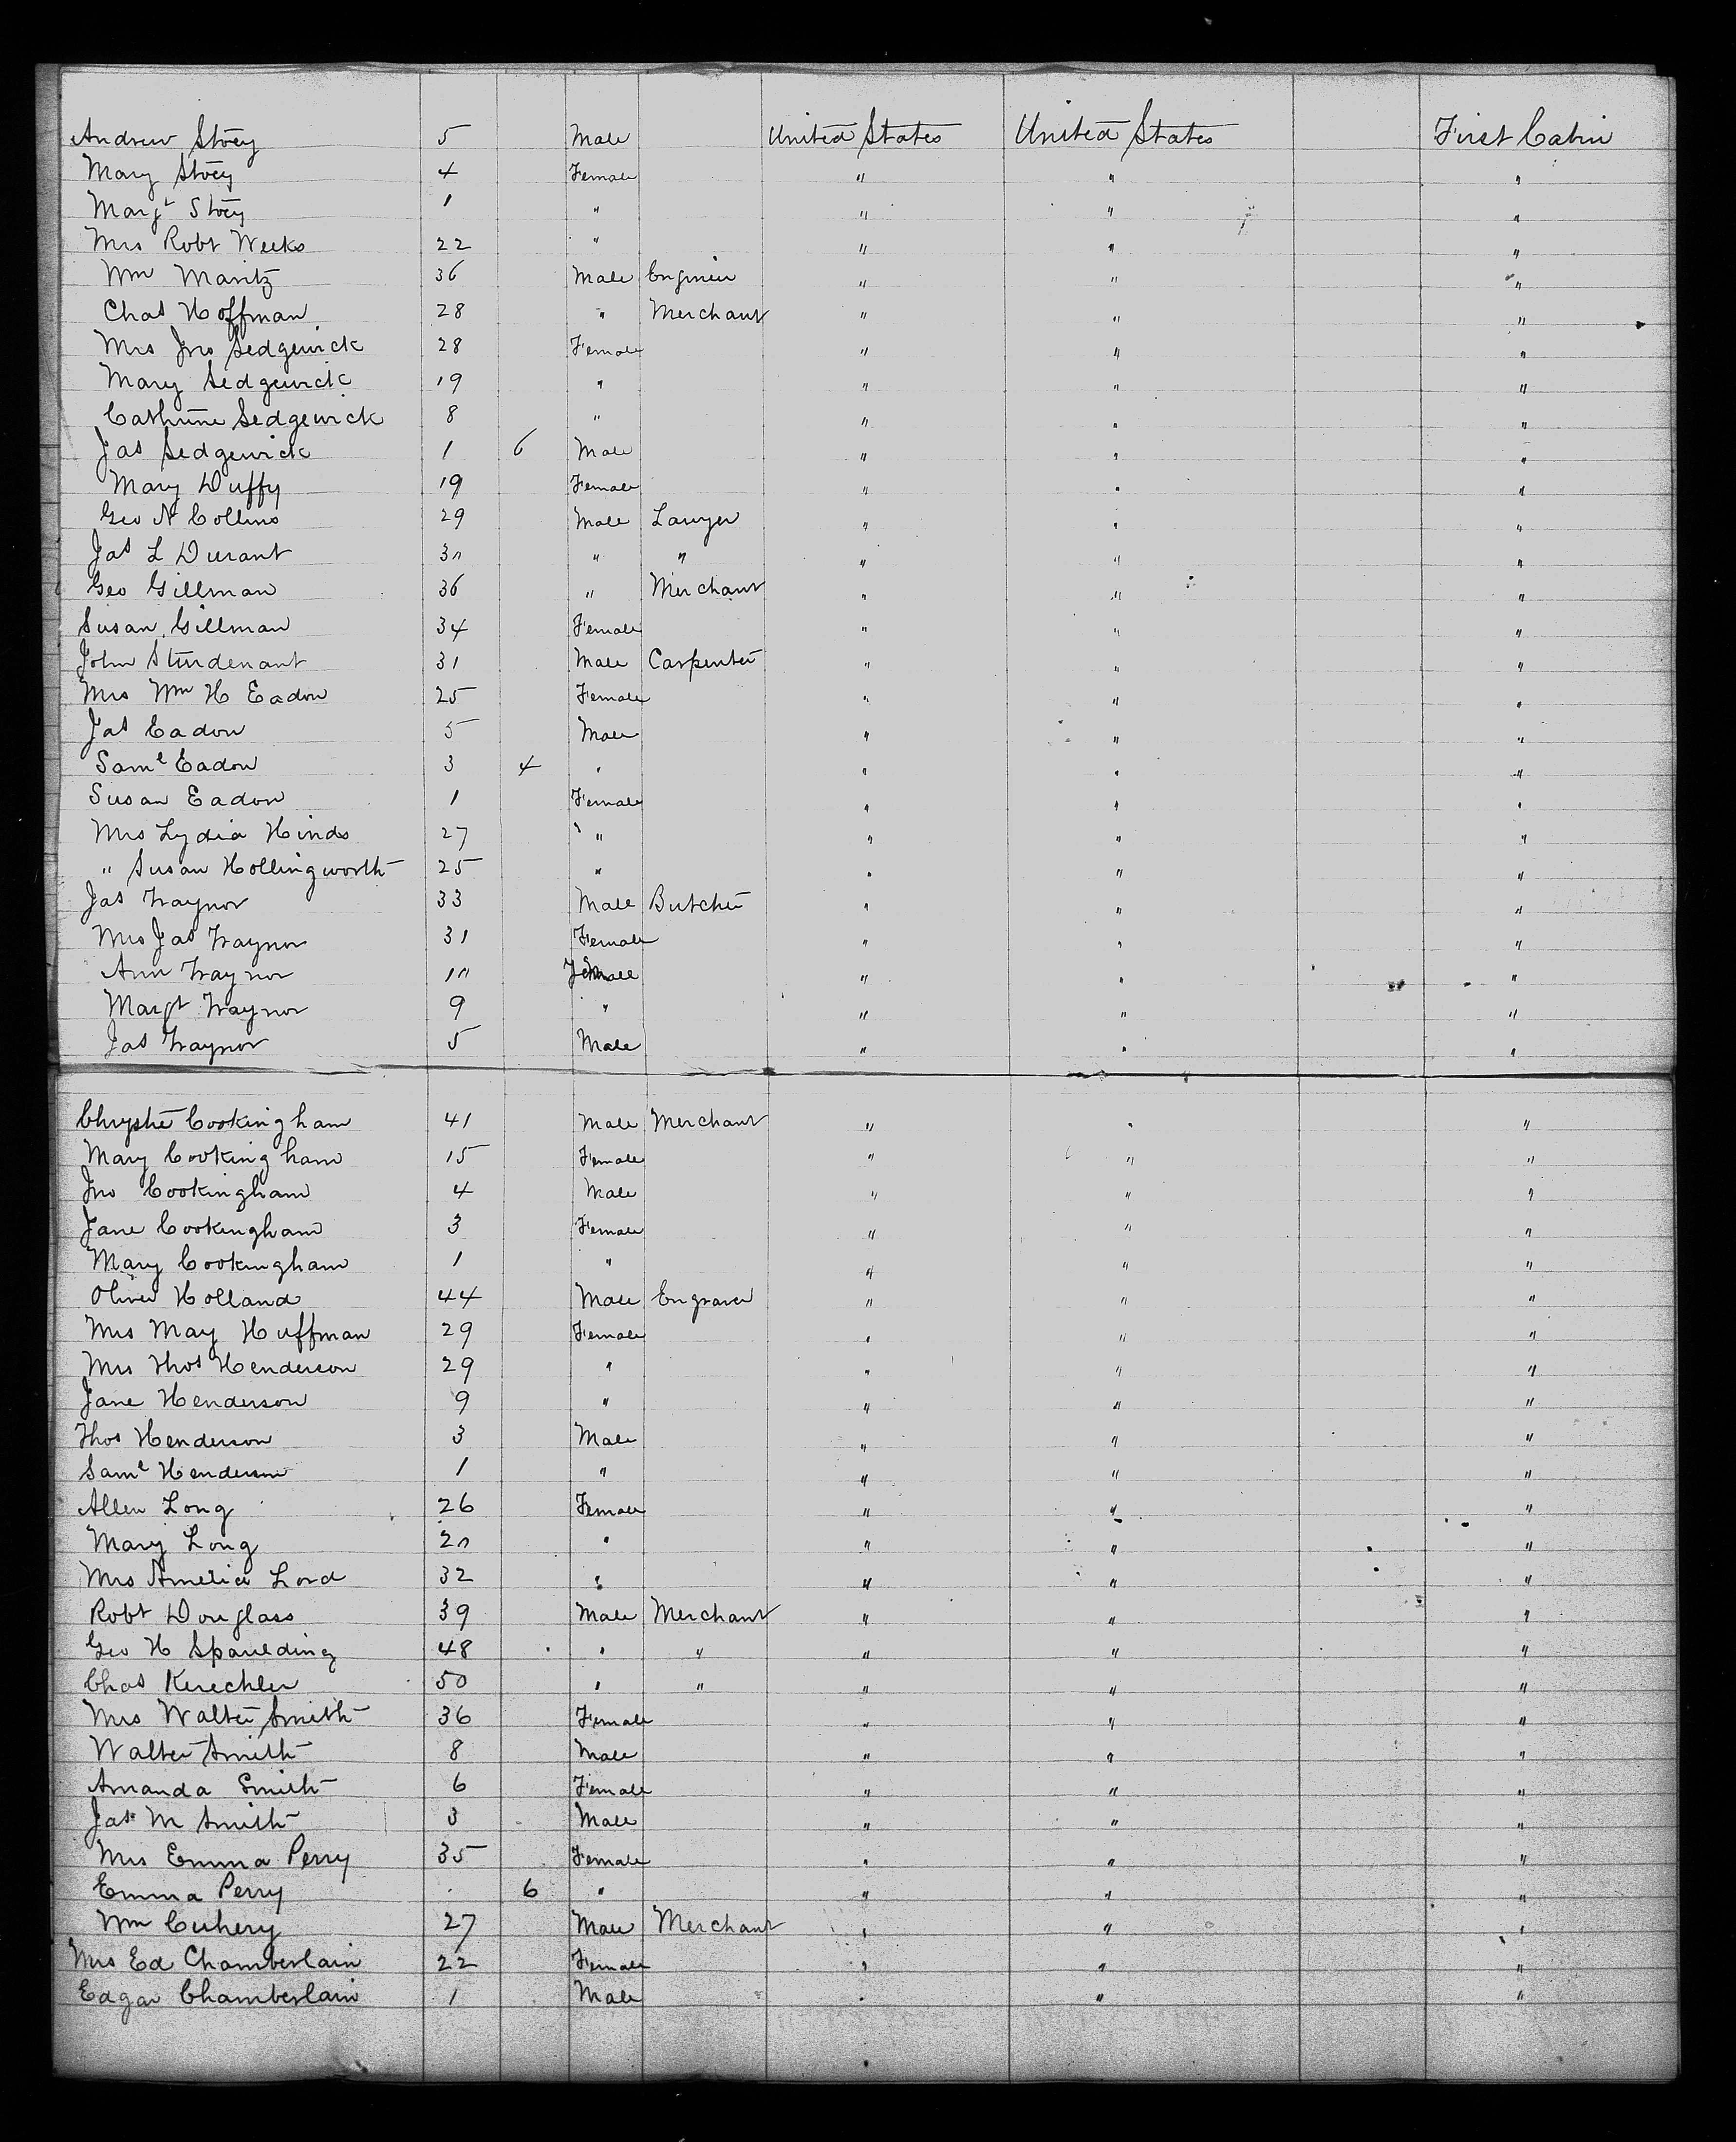 Andrew Stoey 5 Male United States United States First Cabin
Mary Stoey 4 Female " " "
Margt Stoey 1 " " " "
Mrs Robt Weeks 22 " " " "
Wm Maritz 36 Male Engineer " " "
Chas Hoffman 28 " Merchant " " "
Mrs Jno Sedgewick 28 Female " " "
Mary Sedgewick 19 " " " "
Cathrine Sedgewick 8 " " " "
Jas Sedgewick 1 6 Male " " "
Mary Duffy 19 Female " " "
Geo N Collins 29 Male Lawyer " " "
Jas L Durant 30 " " " " "
Geo Gillman 36 " Merchant " " "
Susan Gillman 34 Female " " "
John Sturdenant 31 Male Carpenter " " "
Mrs Wm H Eadon 25 Female " " "
Jas Eadon 5 Male " " "
Saml Eadon 3 4 " " " "
Susan Eadon 1 Female " " "
Mrs Lydia Hinds 27 " " " "
" Susan Hollingworth 25 " " " "
Jas Traynor 33 Male Butcher " " "
Mrs Jas Traynor 31 Female " " "
Ann Traynor 10 Female " " "
Margt Traynor 9 " " " "
Jas Traynor 5 Male " " "
Cookingham 41 Male Merchant " " "
Mary Cookingham 15 Female " " "
Jno Cookingham 4 Male " " "
Jane Cookingham 3 Female " " "
Mary Cookingham 1 " " " "
Oliver Holland 44 Male Engraver " " "
Mrs May Huffman 29 Female " " "
Mrs Thos Henderson 29 " " " "
Jane Henderson 9 " " " "
Thos Henderson 3 Male " " "
Saml Henderson 1 " " " "
Allen Long 26 Female " " "
Mary Long 20 " " " "
Mrs Amelia Lord 32 " " " "
Robt Douglass 39 Male Merchant " " "
Geo H Spaulding 48 " " " " "
Chas Kerechler 50 " " " " "
Mrs Walter Smith 36 Female " " "
Walter Smith 8 Male " " "
Amanda Smith 6 Female " " "
Jas M Smith 3 Male " " "
Mrs Emma Perry 35 Female " " "
Emma Perry 6 " " " "
Wm 27 Male Merchant " " "
Mrs Ed Chamberlain 22 Female " " "
Edgar Chamberlain 1 Male " " "